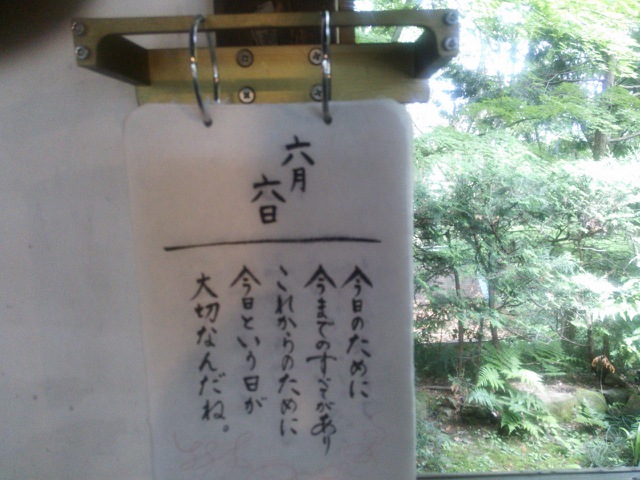 六月
六日
今日のために
今までのすべてがあり
これからのために
今日という日が
大切なんだね。